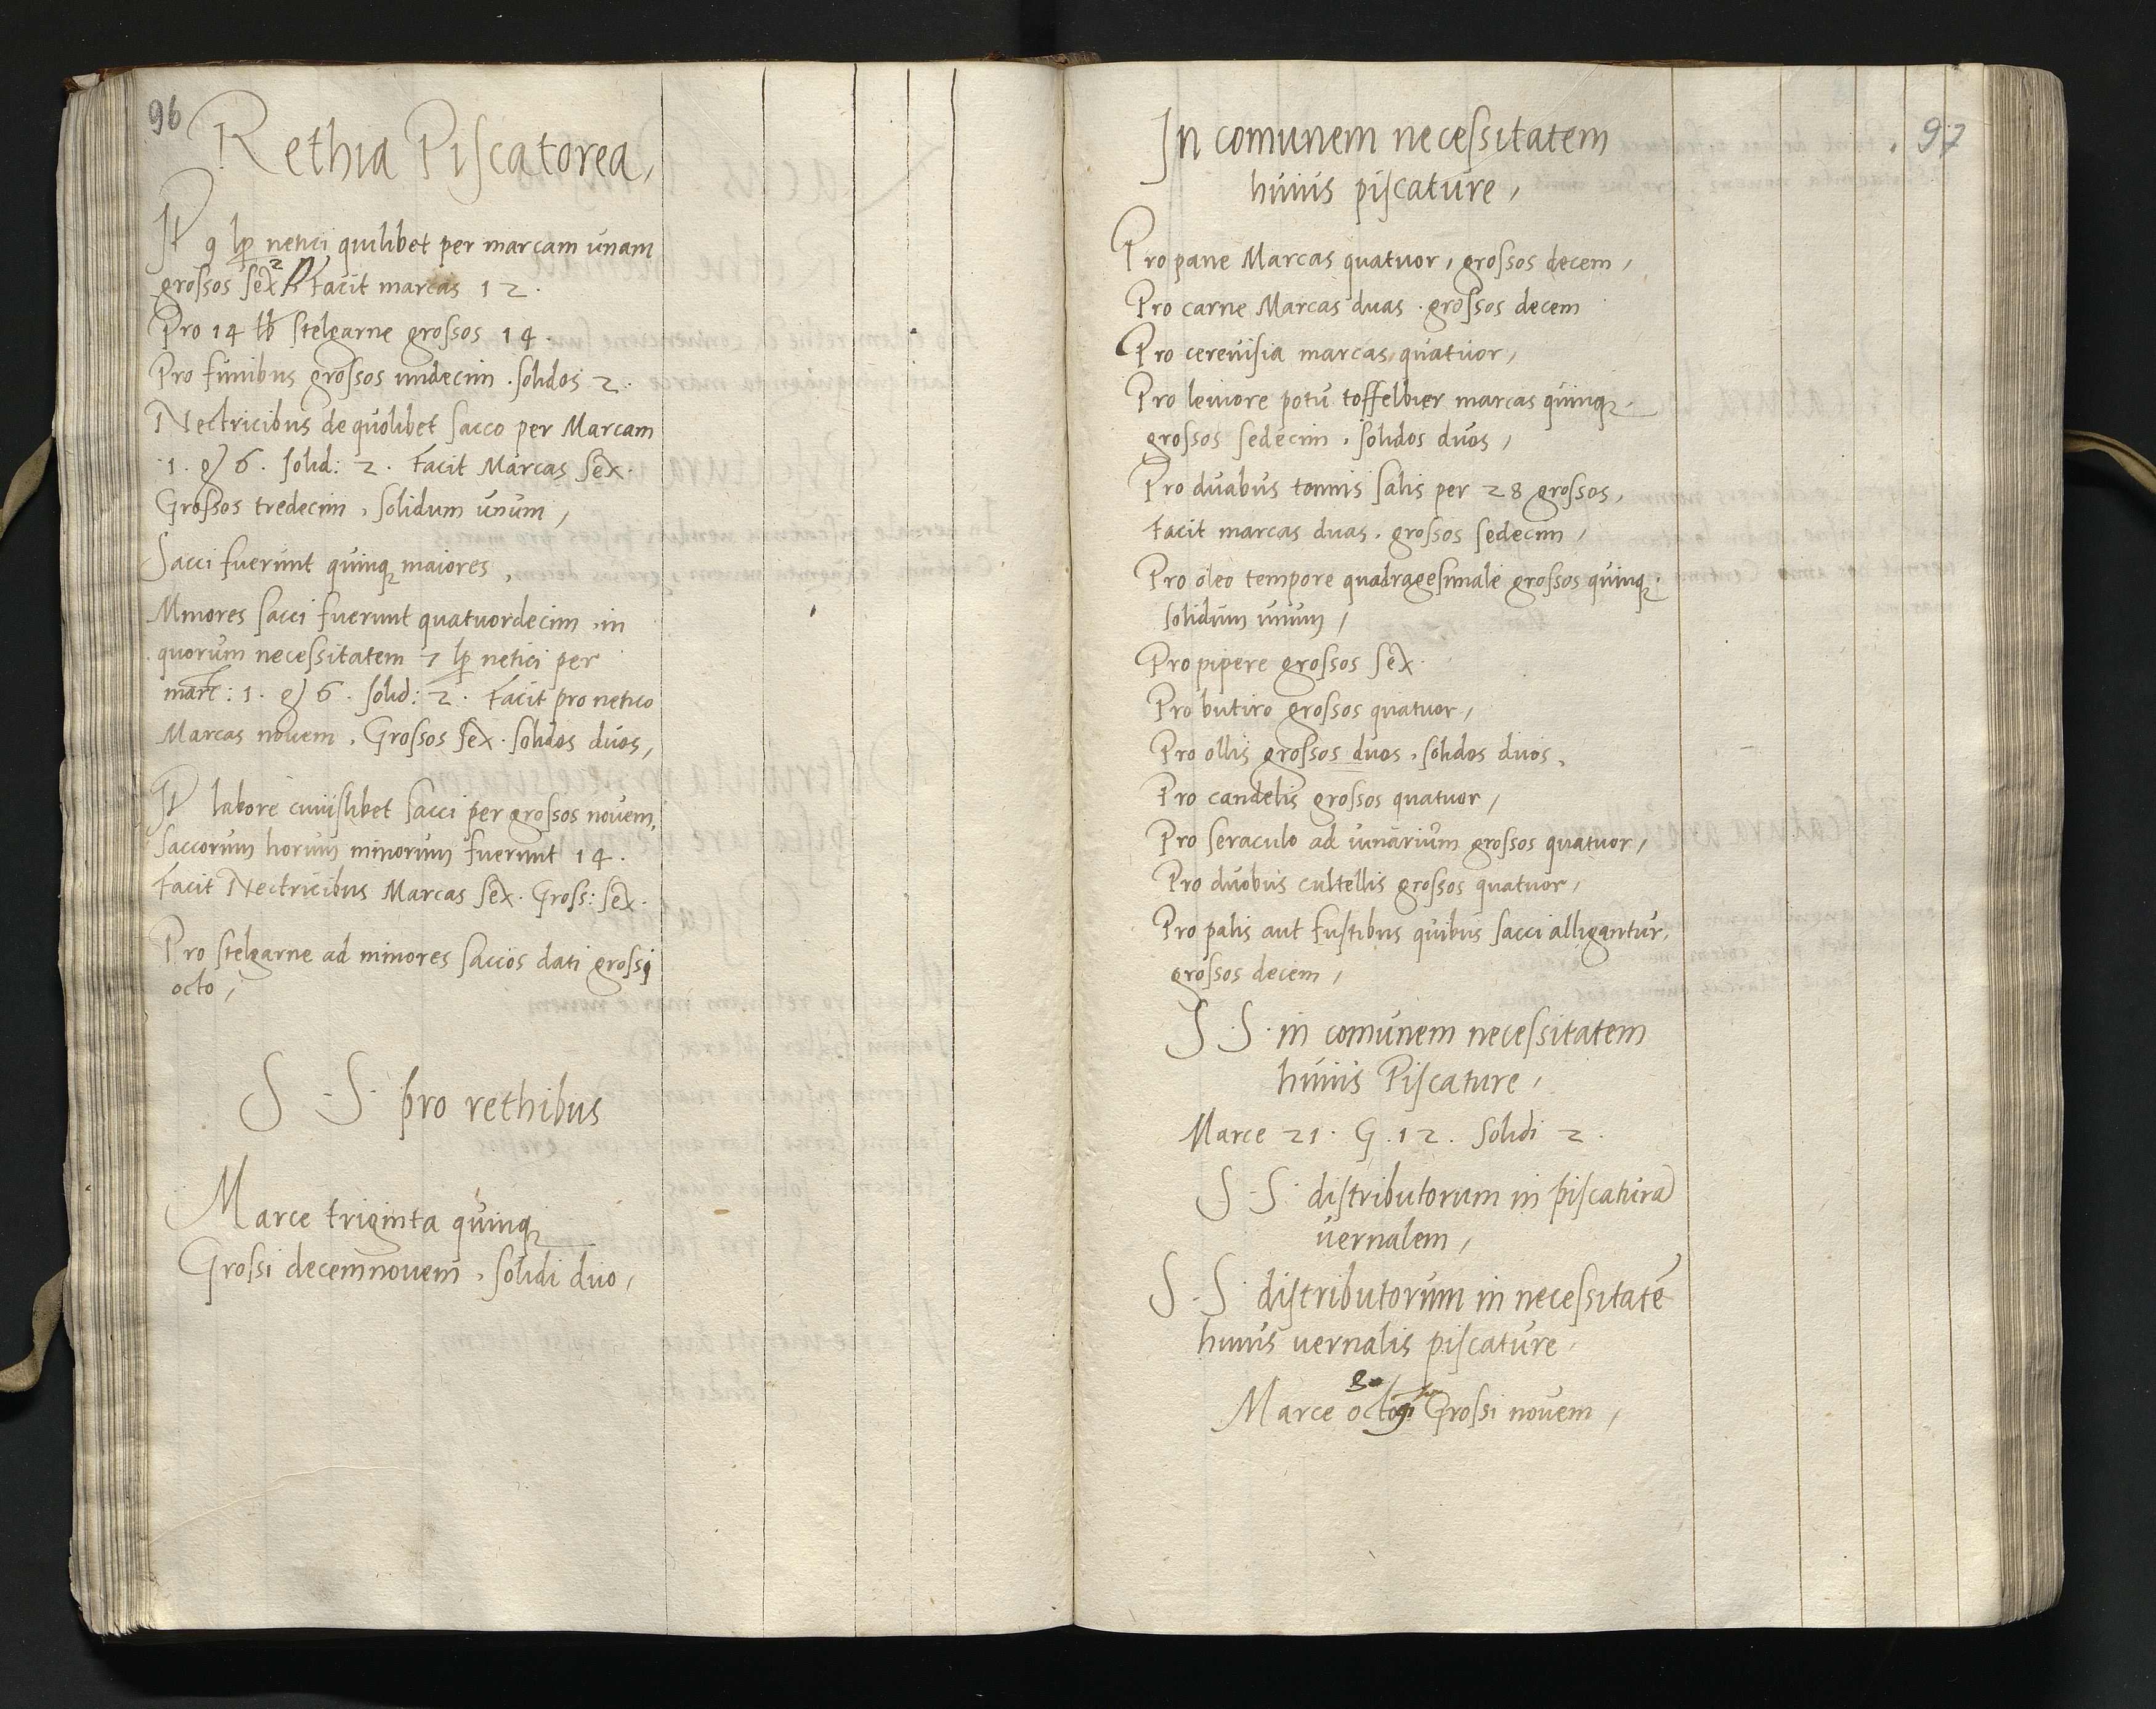 96
Rethia Piscatorea,
P 9 lp netici quilibet per marcam unam
grossos sex 2 ß Facit marcas 12.
Pro 14 lb stelgarne grossos 14
Pro funibus grossos undecim . solidos 2.
Nectricibus de quolibet sacco per Marcam
1. g 6. solid: 2. Facit Marcas sex.
Grossos tredecim, solidum unum,
Sacci fuerunt quinq maiores,
Minores sacci fuerunt quatuordecim, in
quorum necessitatem 7 lp netici per
marc: 1. g 6. solid: 2. Facit pro netico
Marcas novem, Grossos sex. solidos duos,
P labore cuiuslibet sacci per grossos novem,
Saccorum horum minorum fuerunt 14.
Facit Nectricibus Marcas sex. Gross: sex.
Pro stelgarne ad minores saccos dati grossi
octo,
S . S. pro rethibus
Marce triginta quinq
Grossi decemnovem, solidi duo,
97
In comunem necessitatem
huius piscature,
Pro pane Marcas quatuor, grossos decem,
Pro carne Marcas duas. grossos decem
Pro cerevisia marcas quatuor,
Pro leviore potu toffelbier marcas quinq
grossos sedecim, solidos duos,
Pro duabus tonnis salis per 28 grossos,
Facit marcas duas. grossos sedecim,
Pro oleo tempore quadragesimale grossos quinq.
solidum unum,
Pro pipere grossos sex.
Pro butiro grossos quatuor,
Pro ollis grossos duos, solidos duos,
Pro candelis grossos quatuor,
Pro seraculo ad vunarium grossos quatuor,
Pro duobus cultellis grossos quatuor,
Pro palis aut fustibus quibus sacci alligantur,
grossos decem,
S . S. in comunem necessitatem
huius Piscature,
Marce 21. G. 12. Solidi 2.
S . S. distributorum in piscatura
vernalem,
S . S. distributorum in necessitatē
huius vernalis piscature.
Marce Grossi novem,